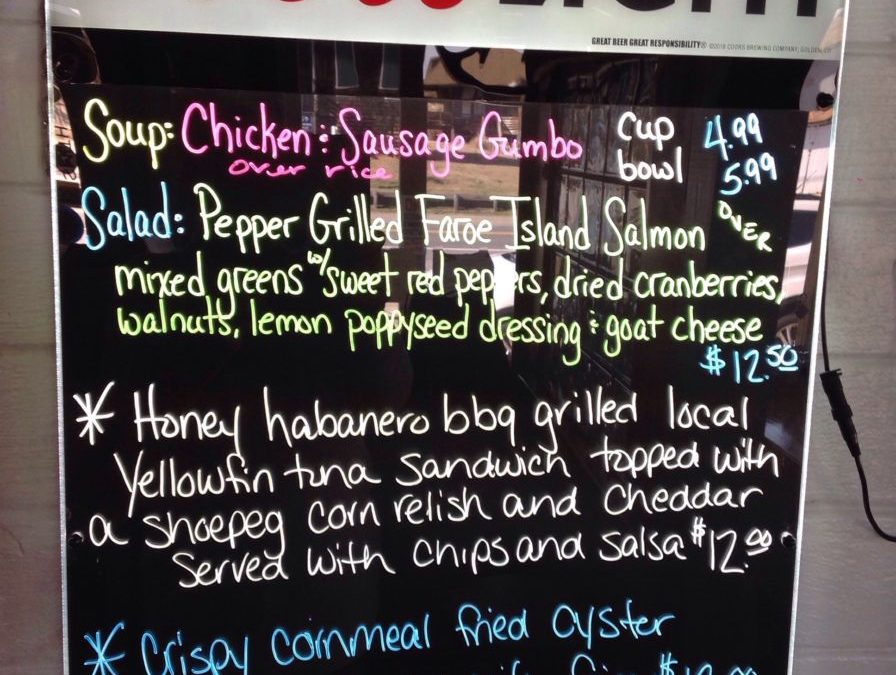 GREAT BEER GREAT RESPONSIBILITY® ©2016 COORS BREWING COMPANY, GOLDEN, CO
Soup: Chicken & Sausage Gumbo cup 4.99
over rice bowl 5.99
Salad: Pepper Grilled Faroe Island Salmon OVER
mixed greens w/ sweet red peppers, dried cranberries,
walnuts, lemon poppyseed dressing & goat cheese
$12.50
* Honey habanero bbq grilled local
Yellowfin tuna sandwich topped with
a shoepeg corn relish and cheddar
served with chips and salsa $12.00
* Crispy cornmeal fried oyster